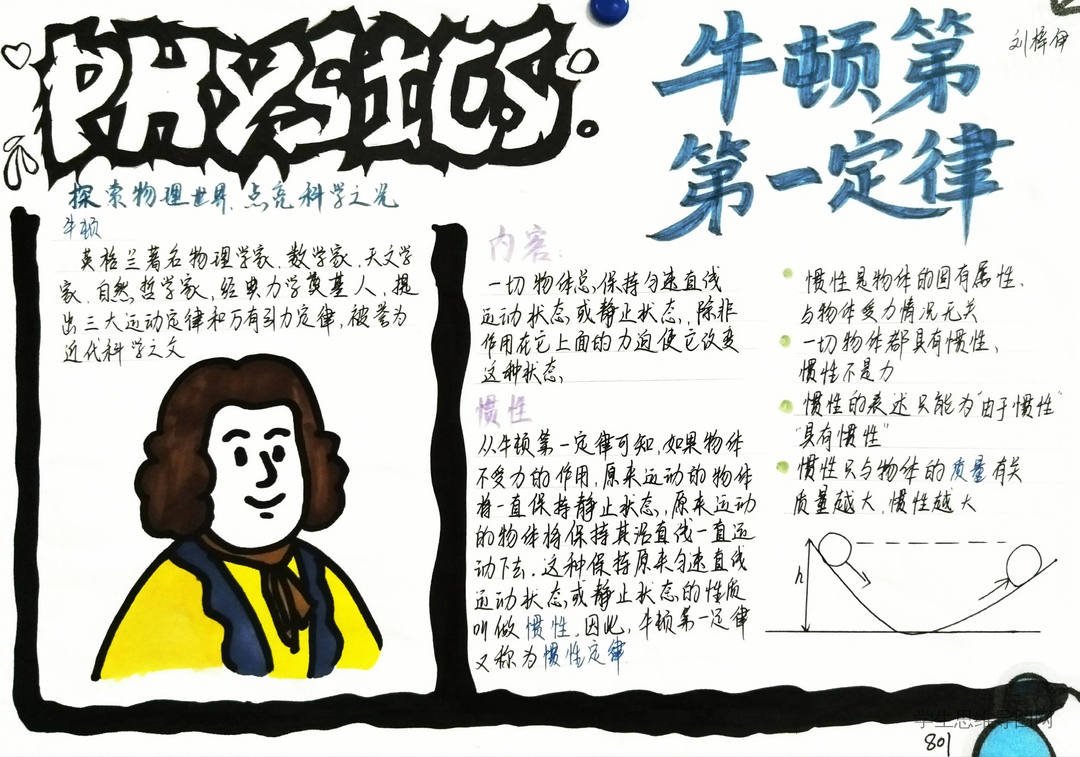 PHYSICS
牛顿第
第一定律
刘梓伊
探索物理世界,点亮科学之光
牛顿
英格兰著名物理学家、数学家、天文学
家、自然哲学家,经典力学奠基人,提
出三大运动定律和万有引力定律,被誉为
近代科学之父
内容:
一切物体总保持匀速直线
运动状态或静止状态,除非
作用在它上面的力迫使它改变
这种状态。
惯性
从牛顿第一定律可知,如果物体
不受力的作用,原来运动的物体
将一直保持静止状态,原来运动
的物体将保持其沿直线一直运
动下去.这种保持原来匀速直线
运动状态或静止状态的性质
叫做惯性.因此,牛顿第一定律
又称为惯性定律
惯性是物体的固有属性,
与物体受力情况无关
一切物体都具有惯性,
惯性不是力
惯性的表述只能为"由于惯性"
"具有惯性"
惯性只与物体的质量有关
质量越大,惯性越大
h
801